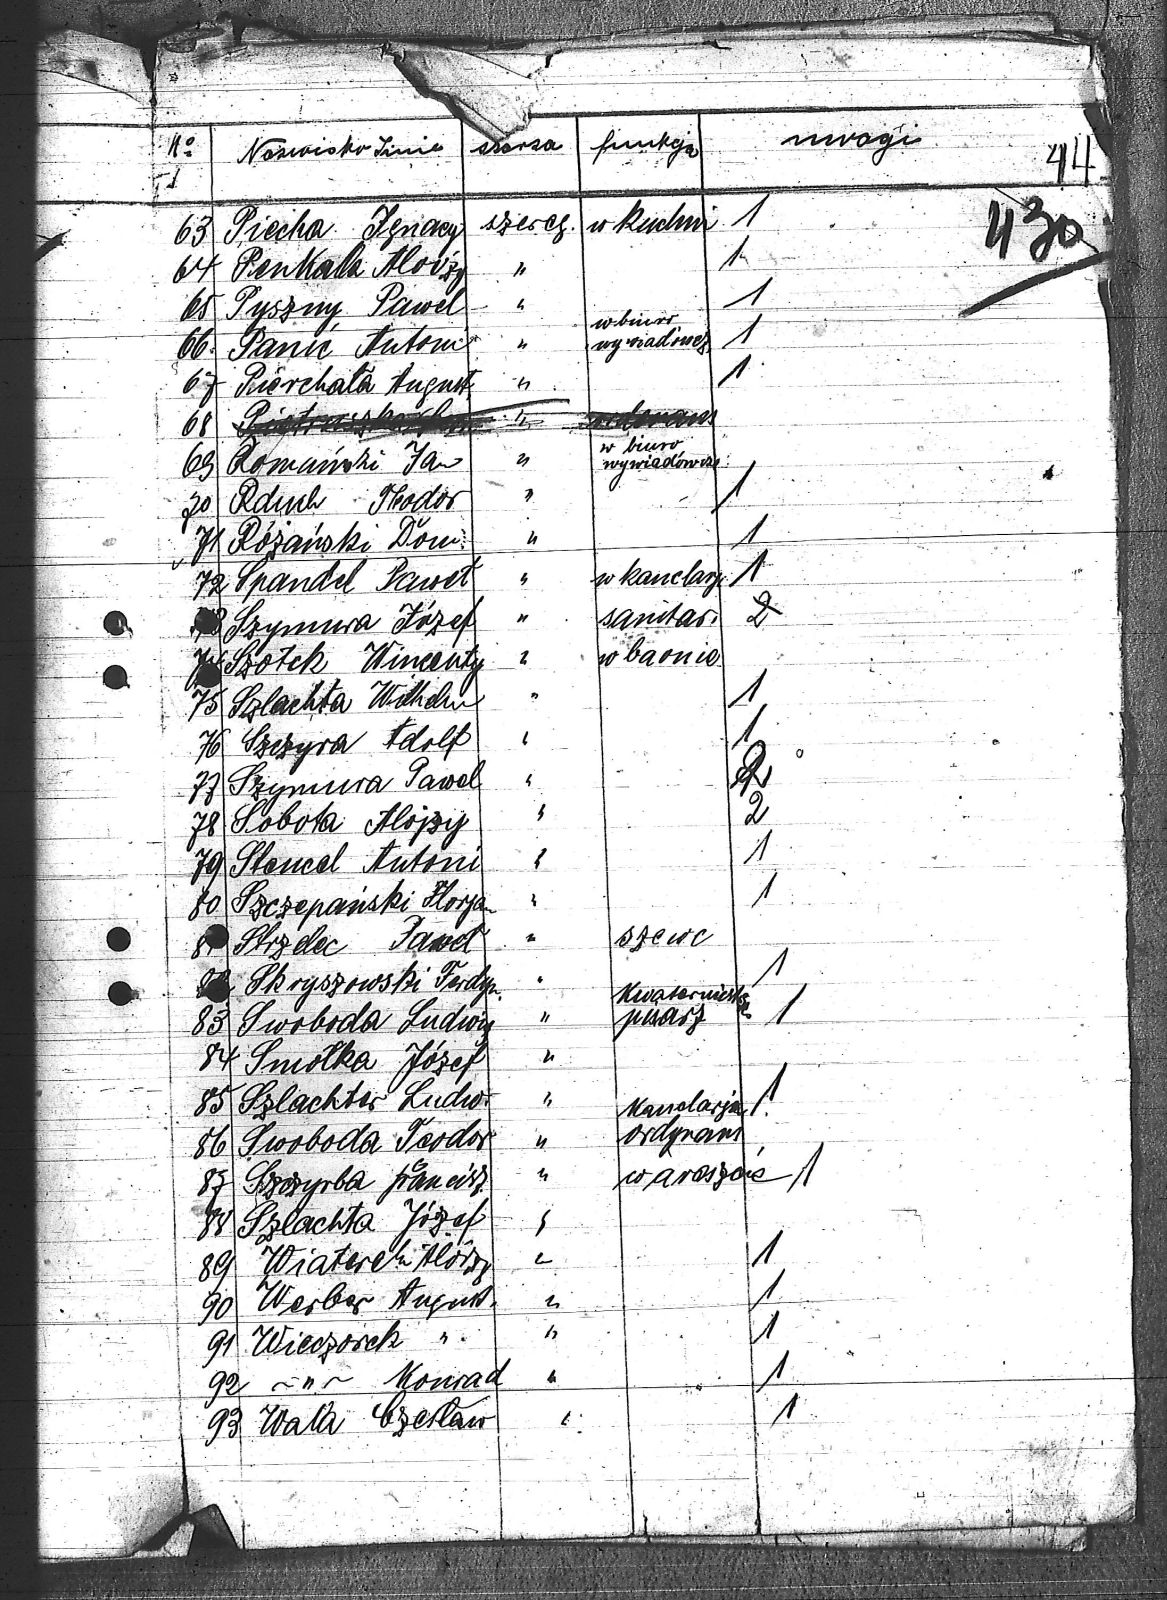 No Nazwisko Imie szarża funkcja uwagi
44
430
63 Piecha Ignacy szereg. w kuchni 1
64 Penkala Alojzy " 1
65 Pyszny Paweł " 1
66. Panic Antoni " w biurze wywiadowcz 1
67 Pierchała August " 1
68 "
69 Romański Jan " w biuro wywiadowcze
70 Rduch Teodor " 1
71 Różański Dom. " 1
72 Spandel Paweł " w kancelarj. 1
73 Szymura Józef " sanitar. 2
74 Szotek Wincenty " w baonie
75 Szlachta Wilhelm " 1
76 Szczyra Adolf " 1
77 Szymura Paweł " 2
78 Sobota Alojzy " 2
79 Stencel Antoni " 1
80 Szczepański Florjan " 1
81 Strzelec Paweł " szewc
82 Skryszowski Ferdyn. " 1
83 Swoboda Ludwig " kwatermistrz pisarz 1
84 Smółka Józef "
85 Szlachter Ludw. " 1
86 Swoboda Teodor " kancelarja ordynans
87 Szczyrba Francisz " w areszcie 1
88 Szlachta Józef "
89 Wiaterek Alojzy " 1
90 Werber August. " 1
91 Wieczorek " " 1
92 ~"~ Konrad " 1
93 Wala Czesław " 1